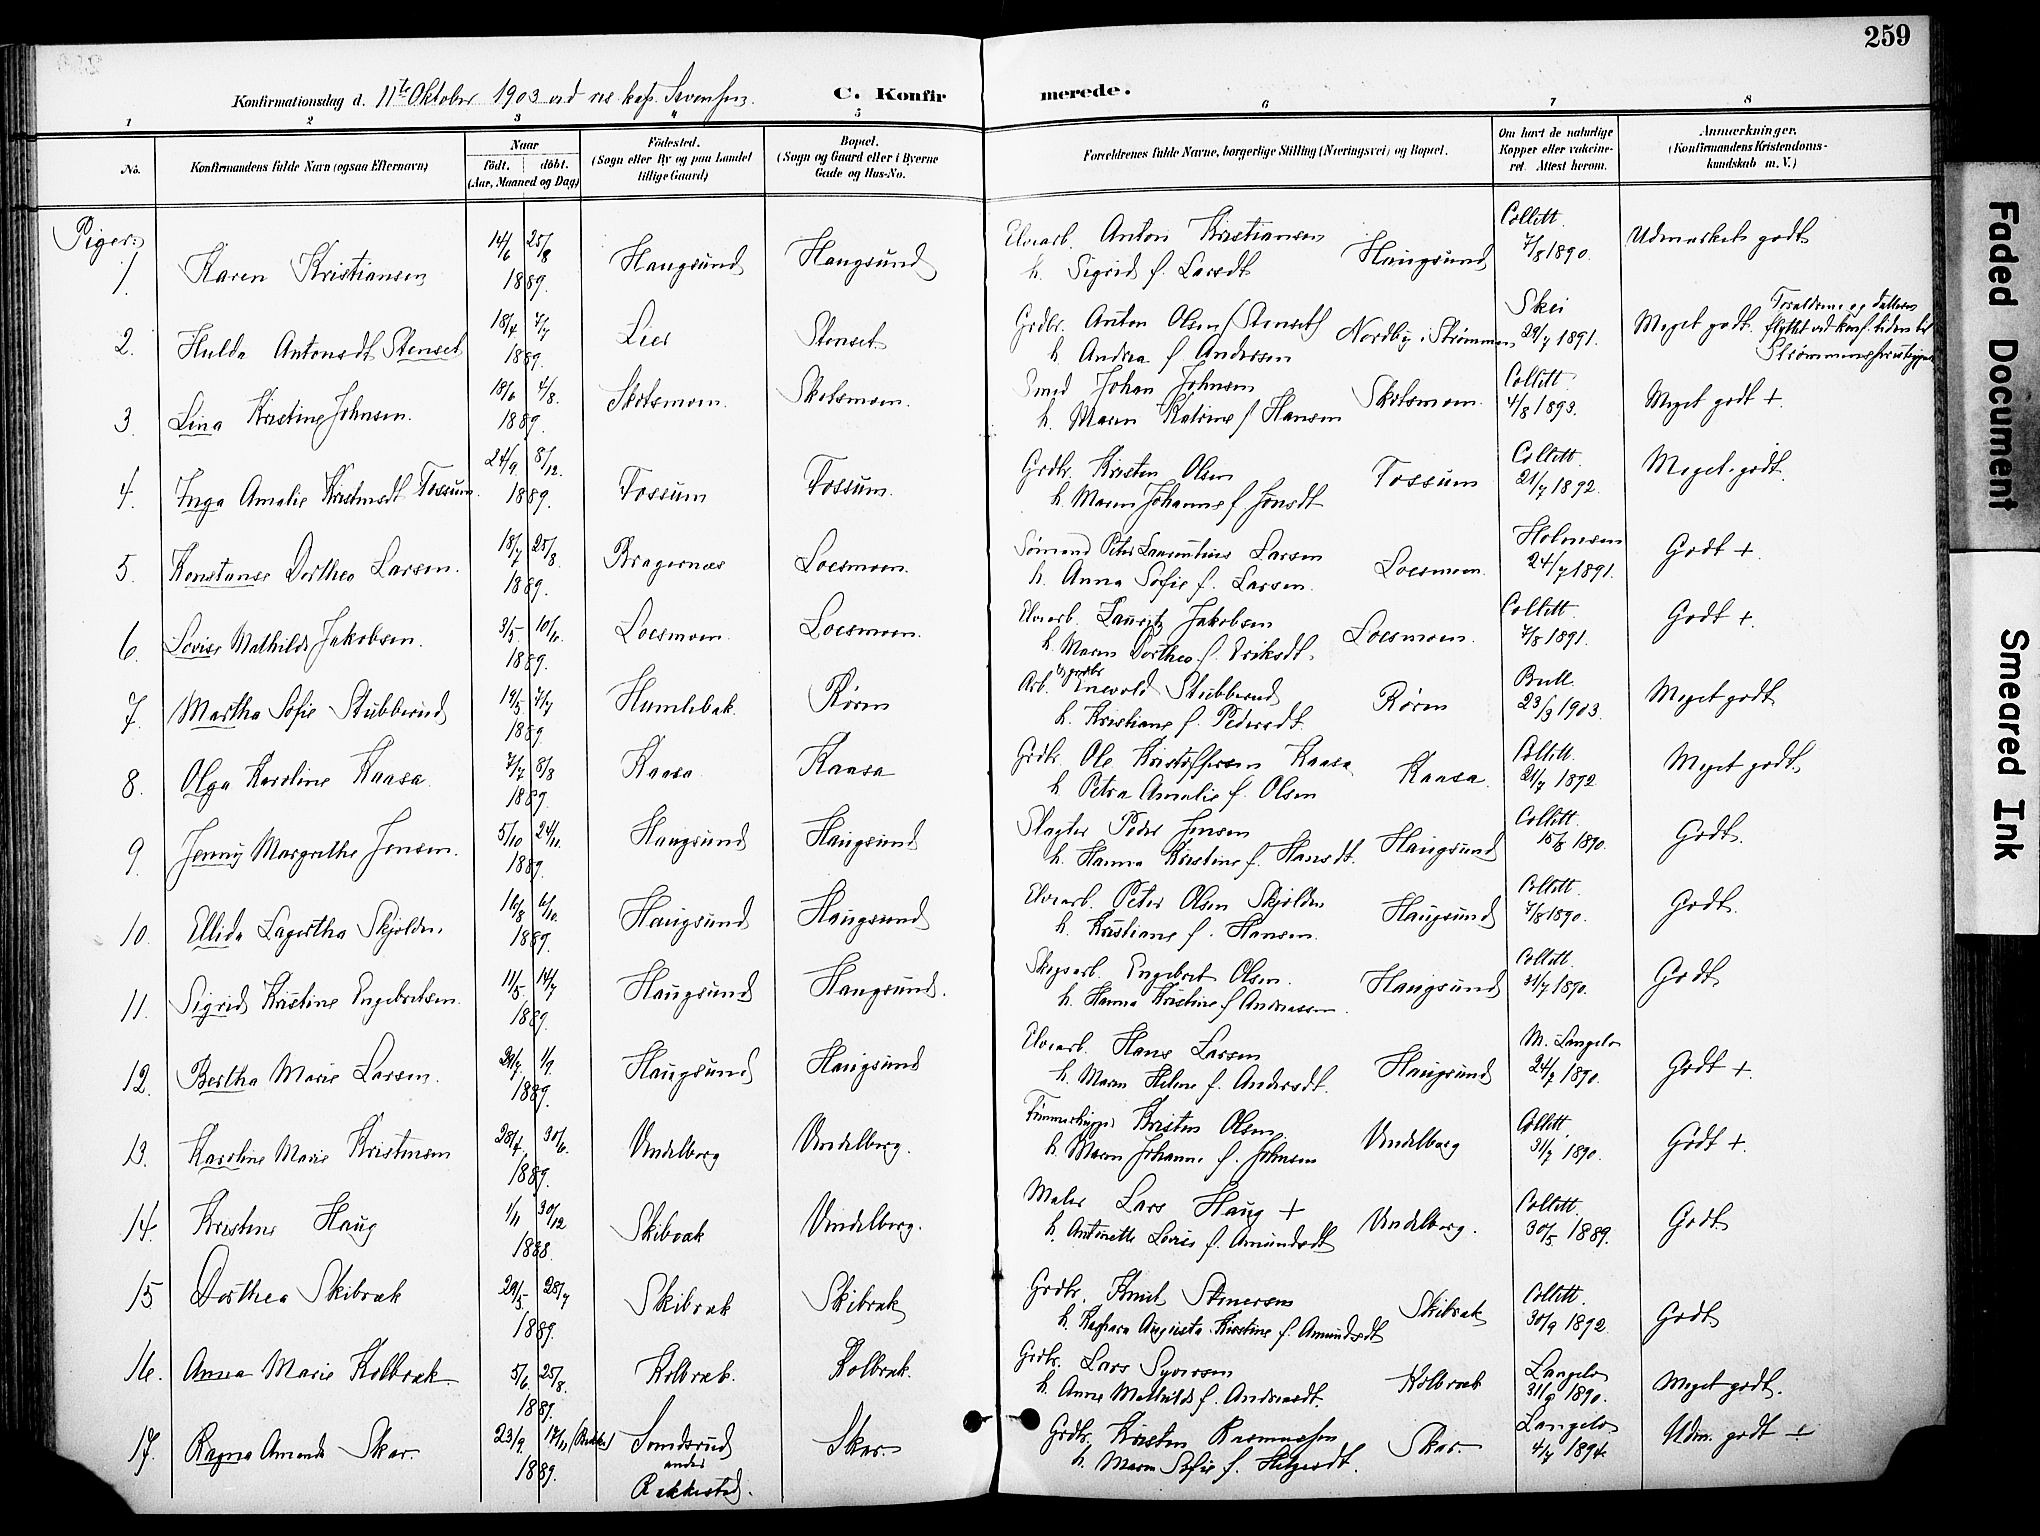 259
Konfirmationsdag d. 11te Oktober 1903 ved res. kap. Svensen. C. Konfirmerede.
1 2 3 4 5 6 7 8
No.
Konfirmandens fulde Navn (ogsaa Efternavn)
Naar
født. døbt.
(Aar, Maaned og Dag)
Fødested.
(Sogn eller By og paa Landet
tillige Gaard)
Bopæl.
(Sogn og Gaard eller i Byerne
Gade og Hus-No.
Forældrenes fulde Navne, borgerlige Stilling (Næringsvei) og Bopæl.
Om havt de naturlige
Kopper eller vakcine-
ret. Attest herom.
Anmærkninger.
(Konfirmandens Kristendoms-
kundskab m. V.)
Piger:
1. Karen Kristiansen 14/6 25/8 1889. Haugsund Haugsund Elvearb. Anton Kristiansen Haugsund Collett. Udmærket godt
h. Sigrid f. Larsdt 7/8 1890.
2. Hulda Antonsdt Stenset 18/4 7/7 1889. Lier Stenset Grdbr. Anton Olsen (Stenseth) Nordby i Strømmen Skei 29/7 1891. Meget godt. Forældrene og datteren
h. Andrea f. Andersen flyttet ved konf. tiden til
Strømmens
3. Lina Kristine Johnsen. 18/6 4/8. 1889. Skotsmoen. Skotsmoen. Smed Johan Johnsen Skotsmoen. Collett. Meget godt +.
h. Maren Katrine f Hansen 4/8 1893.
4. Inga Amalie Kristensdt Fossum. 24/9 8/12. 1889. Fossum Fossum. Grdbr. Kristen Olsen Fossum Collett. Meget godt.
h. Maren Johanne f Jonsdt 21/7 1892.
5. Konstanse Dorthea Larsen. 18/7 25/8. 1889. Bragernæs Loesmoen. Sømand Peter Laurentius Larsen Loesmoen. Holmsen Godt +.
h. Anna Sofie f. Larsen. 24/7 1891.
6. Lovise Mathilde Jakobsen. 3/5. 10/6. 1889. Loesmoen. Loesmoen. Elvearb. Lauritz Jakobsen Loesmoen. Collett. Godt +.
h. Maren Dorthea f. Eriksdt. 7/8 1891.
7. Martha Sofie Stubberud 19/5 7/7 1889. Humlebæk. Røren Arb. Enevold Stubberud Røren Bull. Meget godt
h. Kristiane f. Pedersdt. 23/3 1903.
8. Olga Karoline Kaasa. 7/7 8/8 1889. Kaasa. Kaasa Grdbr. Ole Kristoffersen Kaasa Kaasa. Collett. Meget godt.
h. Petra Amalie f. Olsen 21/7 1892
9. Jenny Margrethe Jensen. 5/10 24/11. 1889. Haugsund Haugsund Slagter Peder Jensen Haugsund Collett. Godt.
h. Hanna Kristine f. Hansdt. 15/8 1890.
10. Ellida Lagertha Skjolden. 16/8 6/10. 1889. Haugsund Haugsund Elvearb. Peter Olsen Skjolden Haugsund Collett. Godt.
h. Kristiane f. Hansen. 7/8 1890.
11. Sigrid Kristine Engebretsen. 11/5 14/7 1889. Haugsund Haugsund. Skogsarb. Engebret Olsen. Haugsund Collett. Godt
h. Hanna Kristine f Andreassen. 31/7 1890.
12. Bertha Marie Larsen. 1/9. 1889. Haugsund Haugsund Elvearb. Hans Larsen Haugsund M. Langelo Godt +.
h. Maren Helene f. Andersdt. 24/7 1890.
13. Karoline Marie Kristensen 28/4. 30/6. 1889. Vendelborg Vendelborg. Tømmerhugger Kristen Olsen. Vendelborg Collett. Godt +.
h. Maren Johanne f. Johnsen 31/7 1890.
14. Kristine Haug 1/11 30/12 1888. Skibræk Vendelborg. Maler Lars Haug + Vendelborg. Collett. Godt
h. Antonette Lovise f. Amundsdt 30/5. 1889.
15 Dorthea Skibræk 29/5. 28/7 1889. Skibræk Skibræk Grdbr. Knut Stenersen Skibræk Collett. Godt
h. Augusta Kirstine f. Amundsdt 30/9 1892.
16. Anna Marie Kolbræk. 5/6. 25/8. 1889. Kolbræk. Kolbræk. Grdbr. Lars Syversen Kolbræk Langelo Meget godt.
h. Anne Mathilde f. Andersdt. 31/9 1890.
17. Ragna Amanda Skar. 23/9. 17/11 1889. Sondsrud Skar. Grdbr. Kristen Rasmussen Skar. Langelo Udm. godt +
under
Rakkestad. h. Maren Sofie f. Helgesdt. 4/7 1894.
Faded Document
Smeared Ink